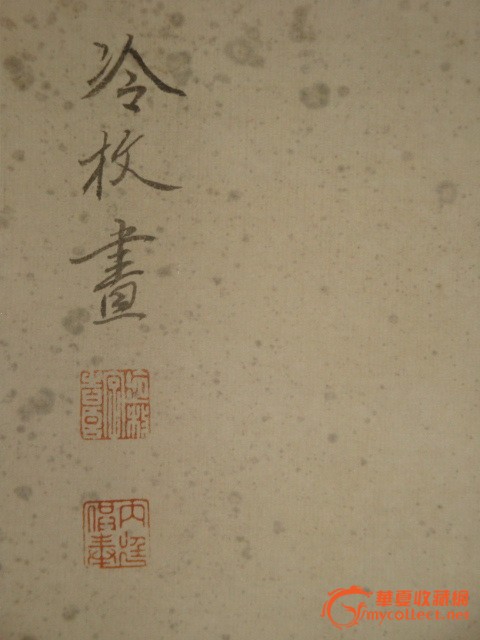 冷枚畫
内廷供奉
華夏收藏網
mycollect.net